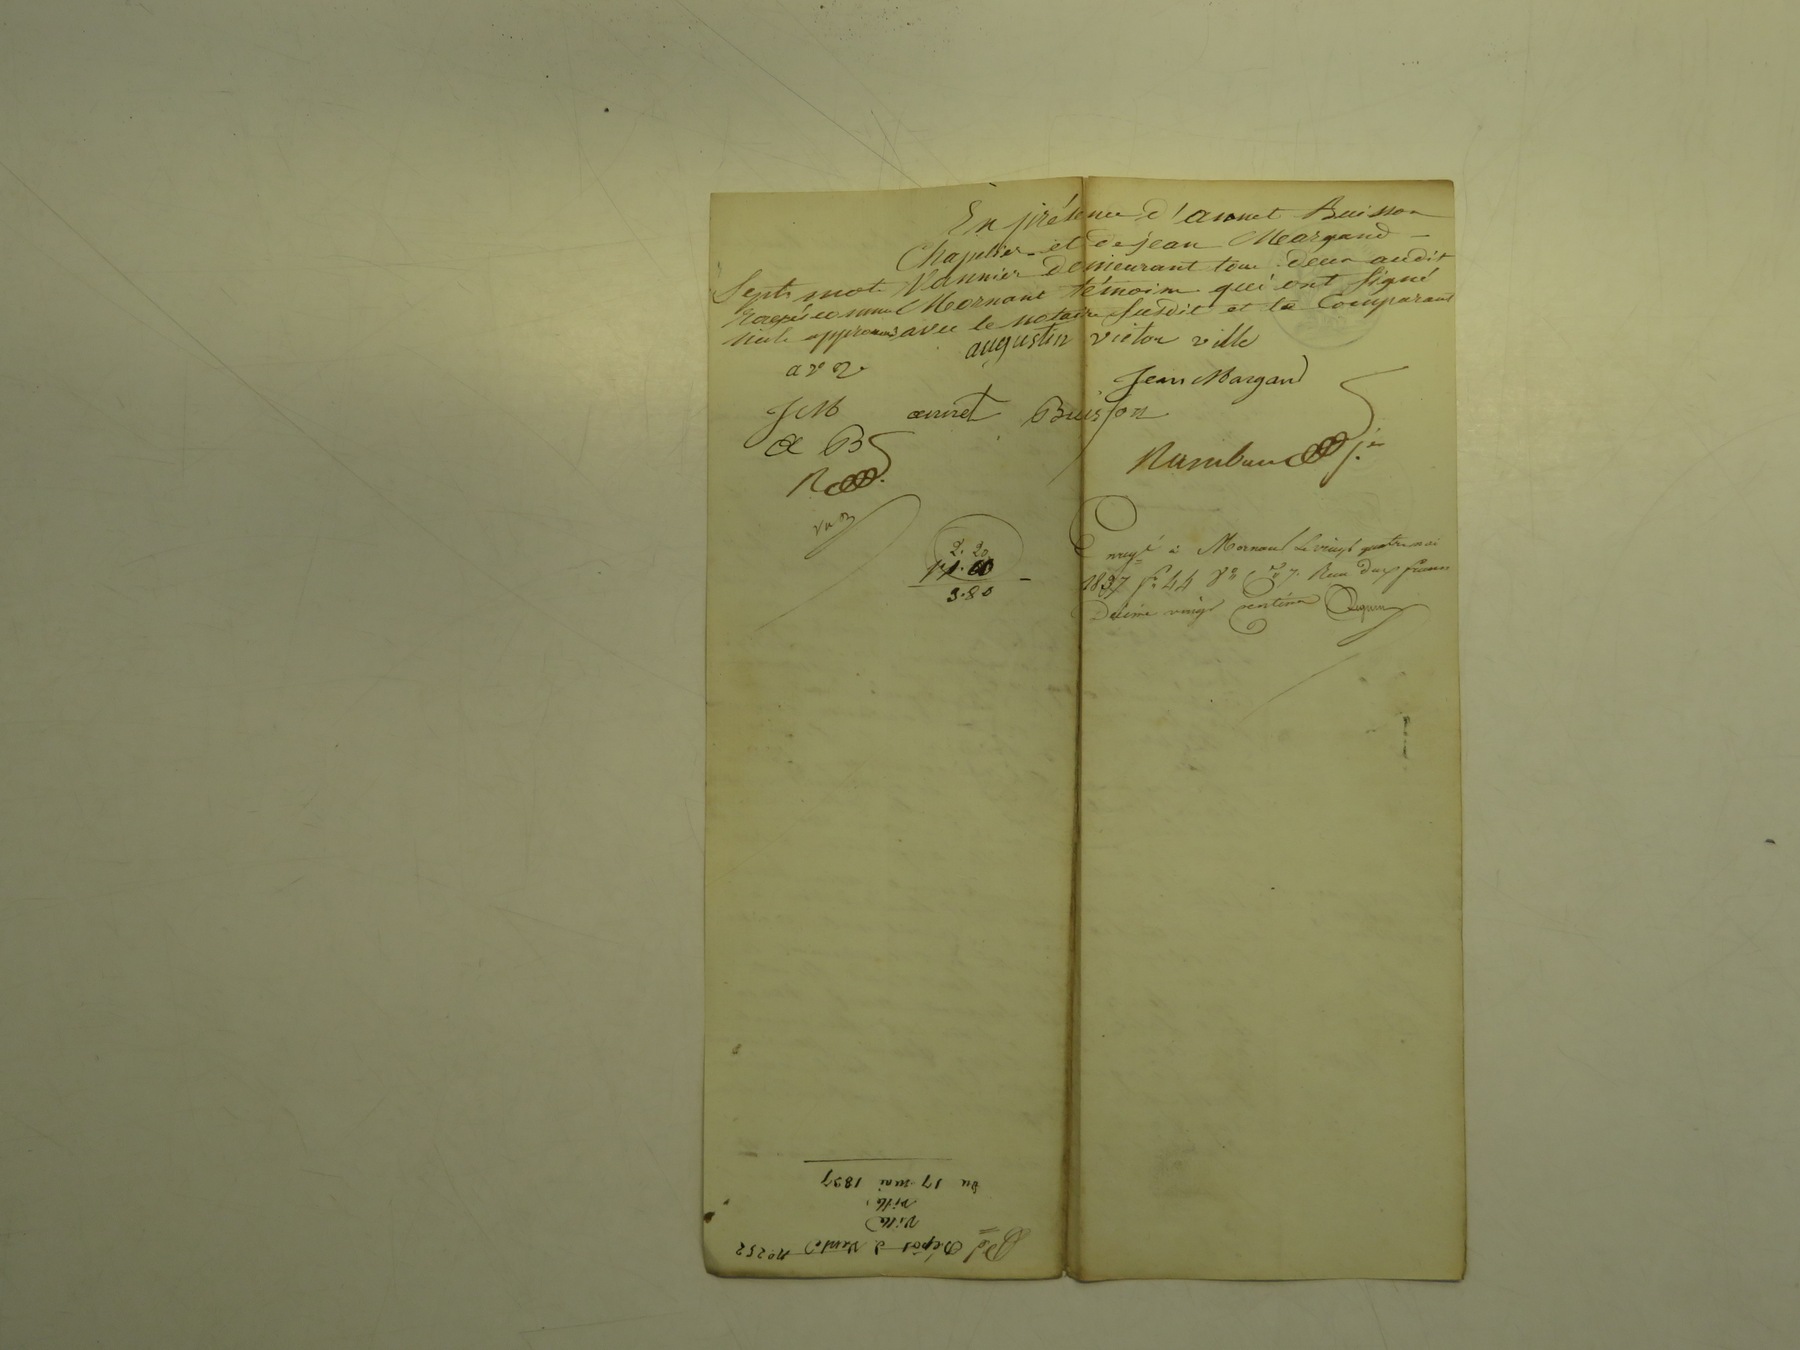 En présence d'annet Buisson
Chapelier et de jean Margand
Vannier demeurant tous deux audit
Mornant témoins qui ont signé
avec le notaire susdit et le Comparant
Sept mots
nuls approuvés
augustin victor ville
a v v
Jean Margand
J M
annet Buisson
a B
R
2. 20
1. 60
3. 80
à Mornant le vingt quatre mai
1837 fo 44 Vo Co 7. Reçu deux francs
Décime vingt centimes
No 252
Dépôt de Vente
Ville
Ville
Du 17 mai 1837